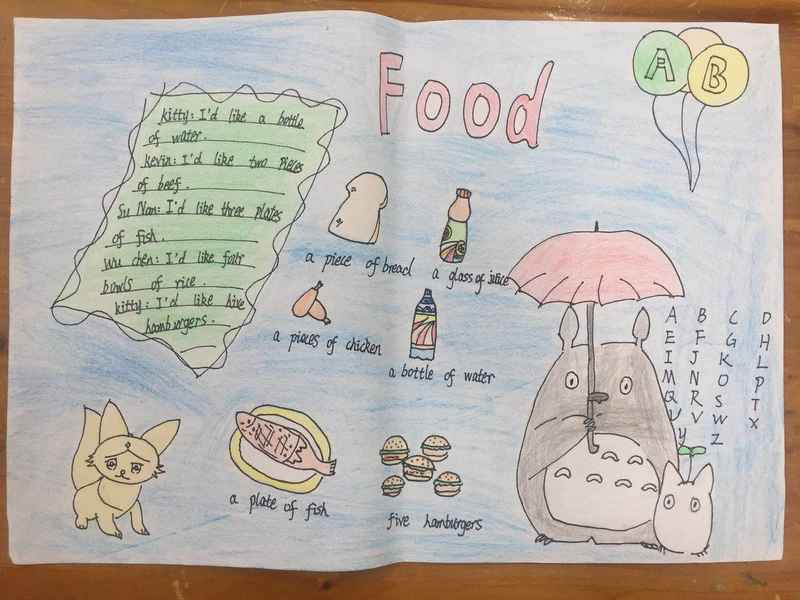 Food
A B
kitty: I'd like a bottle
of water.
kevin: I'd like two pieces
of beef.
Su Nan: I'd like three plates
of fish.
Wu chen: I'd like four
bowls of rice.
kitty: I'd like hive
hamburgers.
a piece of bread
a glass of juice
a pieces of chicken
a bottle of water
a plate of fish
five hamburgers
A B C D
E F G H
I J K L
M N O P
Q R S T
U V W X
y Z